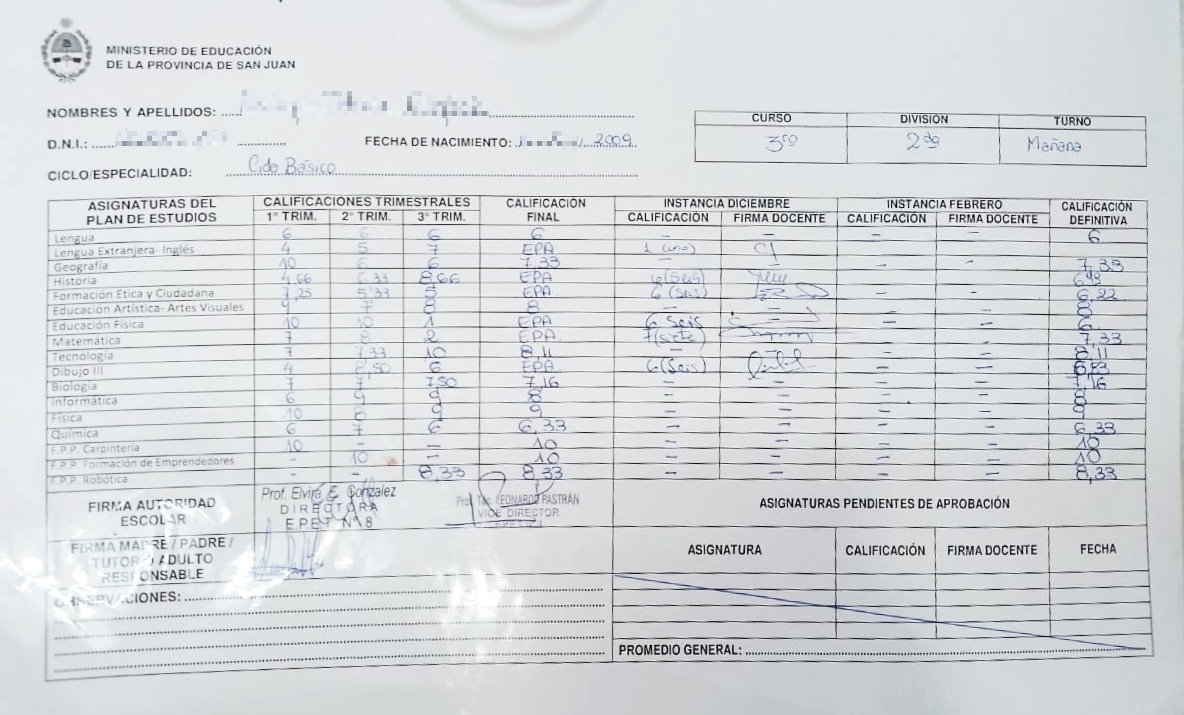 MINISTERIO DE EDUCACIÓN
DE LA PROVINCIA DE SAN JUAN
NOMBRES Y APELLIDOS:
D.N.I.: FECHA DE NACIMIENTO: 2009
CICLO/ESPECIALIDAD: Ciclo Básico
CURSO DIVISIÓN TURNO
3ro 2da Mañana
ASIGNATURAS DEL PLAN DE ESTUDIOS CALIFICACIONES TRIMESTRALES CALIFICACIÓN FINAL INSTANCIA DICIEMBRE INSTANCIA FEBRERO CALIFICACIÓN DEFINITIVA
1° TRIM. 2° TRIM. 3° TRIM. CALIFICACIÓN FIRMA DOCENTE CALIFICACIÓN FIRMA DOCENTE
Lengua 6 6 6 6 - - - - 6
Lengua Extranjera- Inglés 4 5 7 EPA 1 (uno)
Geografía 10 6 6 7,33 - - - - 7,33
Historia 4,66 6,33 8,66 EPA 6 (Seis) - -
Formación Ética y Ciudadana 7,25 5,33 5 EPA 6 (seis) - - 6,22
Educación Artística- Artes Visuales 9 7 8 8 - - - - 8
Educación Física 10 10 1 EPA 6 Seis - - 6
Matemática 7 8 2 EPA 7 (siete) - - 7,33
Tecnología 7 7,33 10 8,11 - - - - 8,11
Dibujo III 4 8,50 6 EPA 6 (Seis) - -
Biología 7 7 7,50 7,16 - - - - 7,16
Informática 6 9 9 8 - - - - 8
Física 10 8 9 9 - - - - 9
Química 6 7 6 6,33 - - - - 6,33
F.P.P. Carpintería 10 - - 10 - - - - 10
F.P.P. Formación de Emprendedores - 10 - 10 - - - - 10
F.P.P. Robótica - - 8,33 8,33 - - - - 8,33
FIRMA AUTORIDAD ESCOLAR
Prof. Elvira E. Gonzalez
DIRECTORA
E.P.E.T. N° 8
LEONARDO PASTRÁN
VICE DIRECTOR
ASIGNATURAS PENDIENTES DE APROBACIÓN
FIRMA MADRE / PADRE /
TUTOR O ADULTO
RESPONSABLE
ASIGNATURA CALIFICACIÓN FIRMA DOCENTE FECHA
OBSERVACIONES:
PROMEDIO GENERAL: